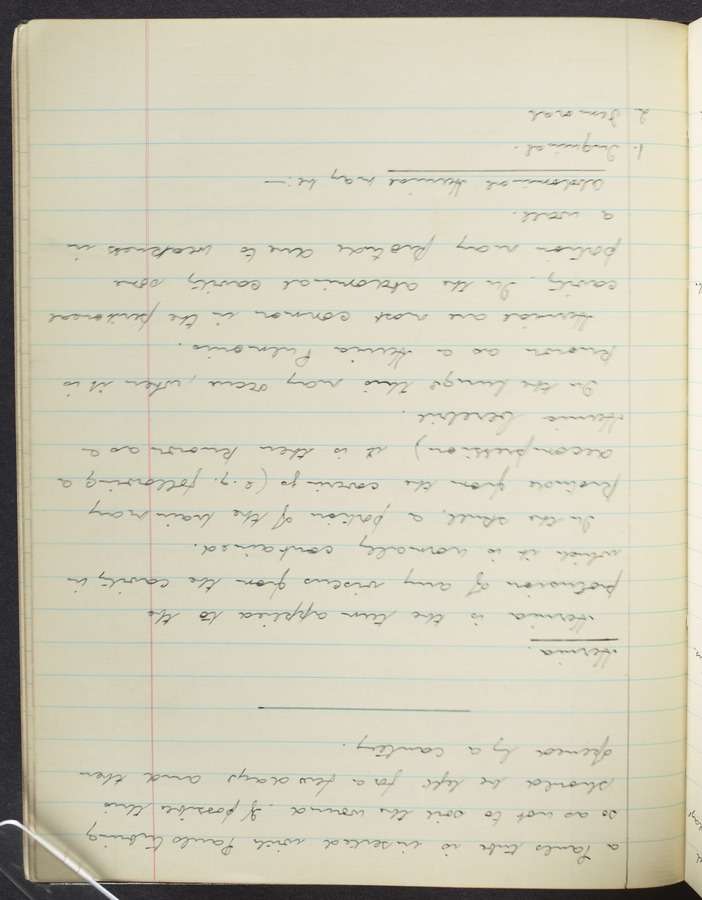 a Pauls tube is inserted with Pauls tubing
so as not to soil the wound. If possible this
should be left for a few days and then
opened by a cautery.
Hernia.
Hernia is the term applied to the
protusion of any viscus from the cavity in
which it is normally contained.
In the skull, a portion of the brain may
protrude from the coverings (e.g. following a
decompression) it is then known as a
Hernia Cerebri.
In the lungs this may occur, when it is
known as a Hernia Pulmonis.
Herniae are most common in the peritoneal
cavity. In the abdominal cavity some
portion may protrude due to weakness in
a wall.
Abdominal Herniae may be:—
1. Inguinal.
2 Femoral